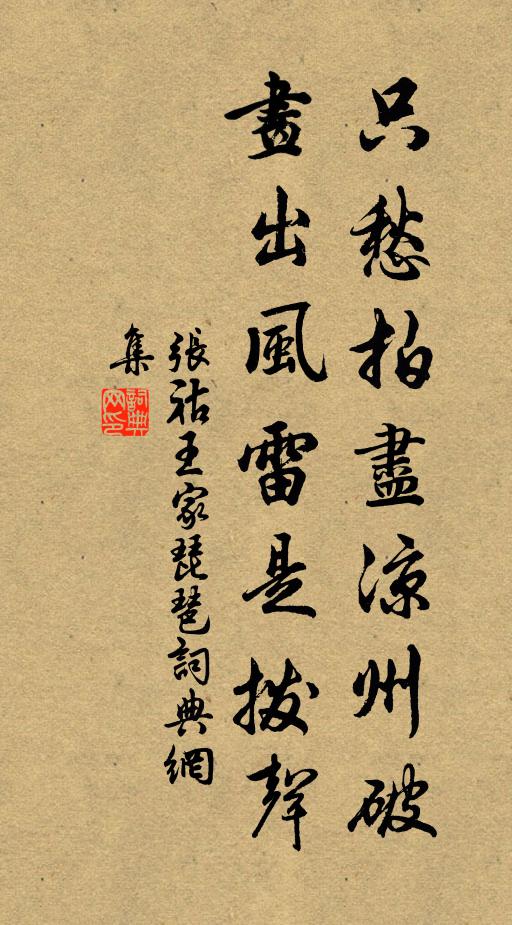 只愁拍盡涼州破
畫出風雷是撥聲
張祜王家琵琶詞典網
集
詞典
网印